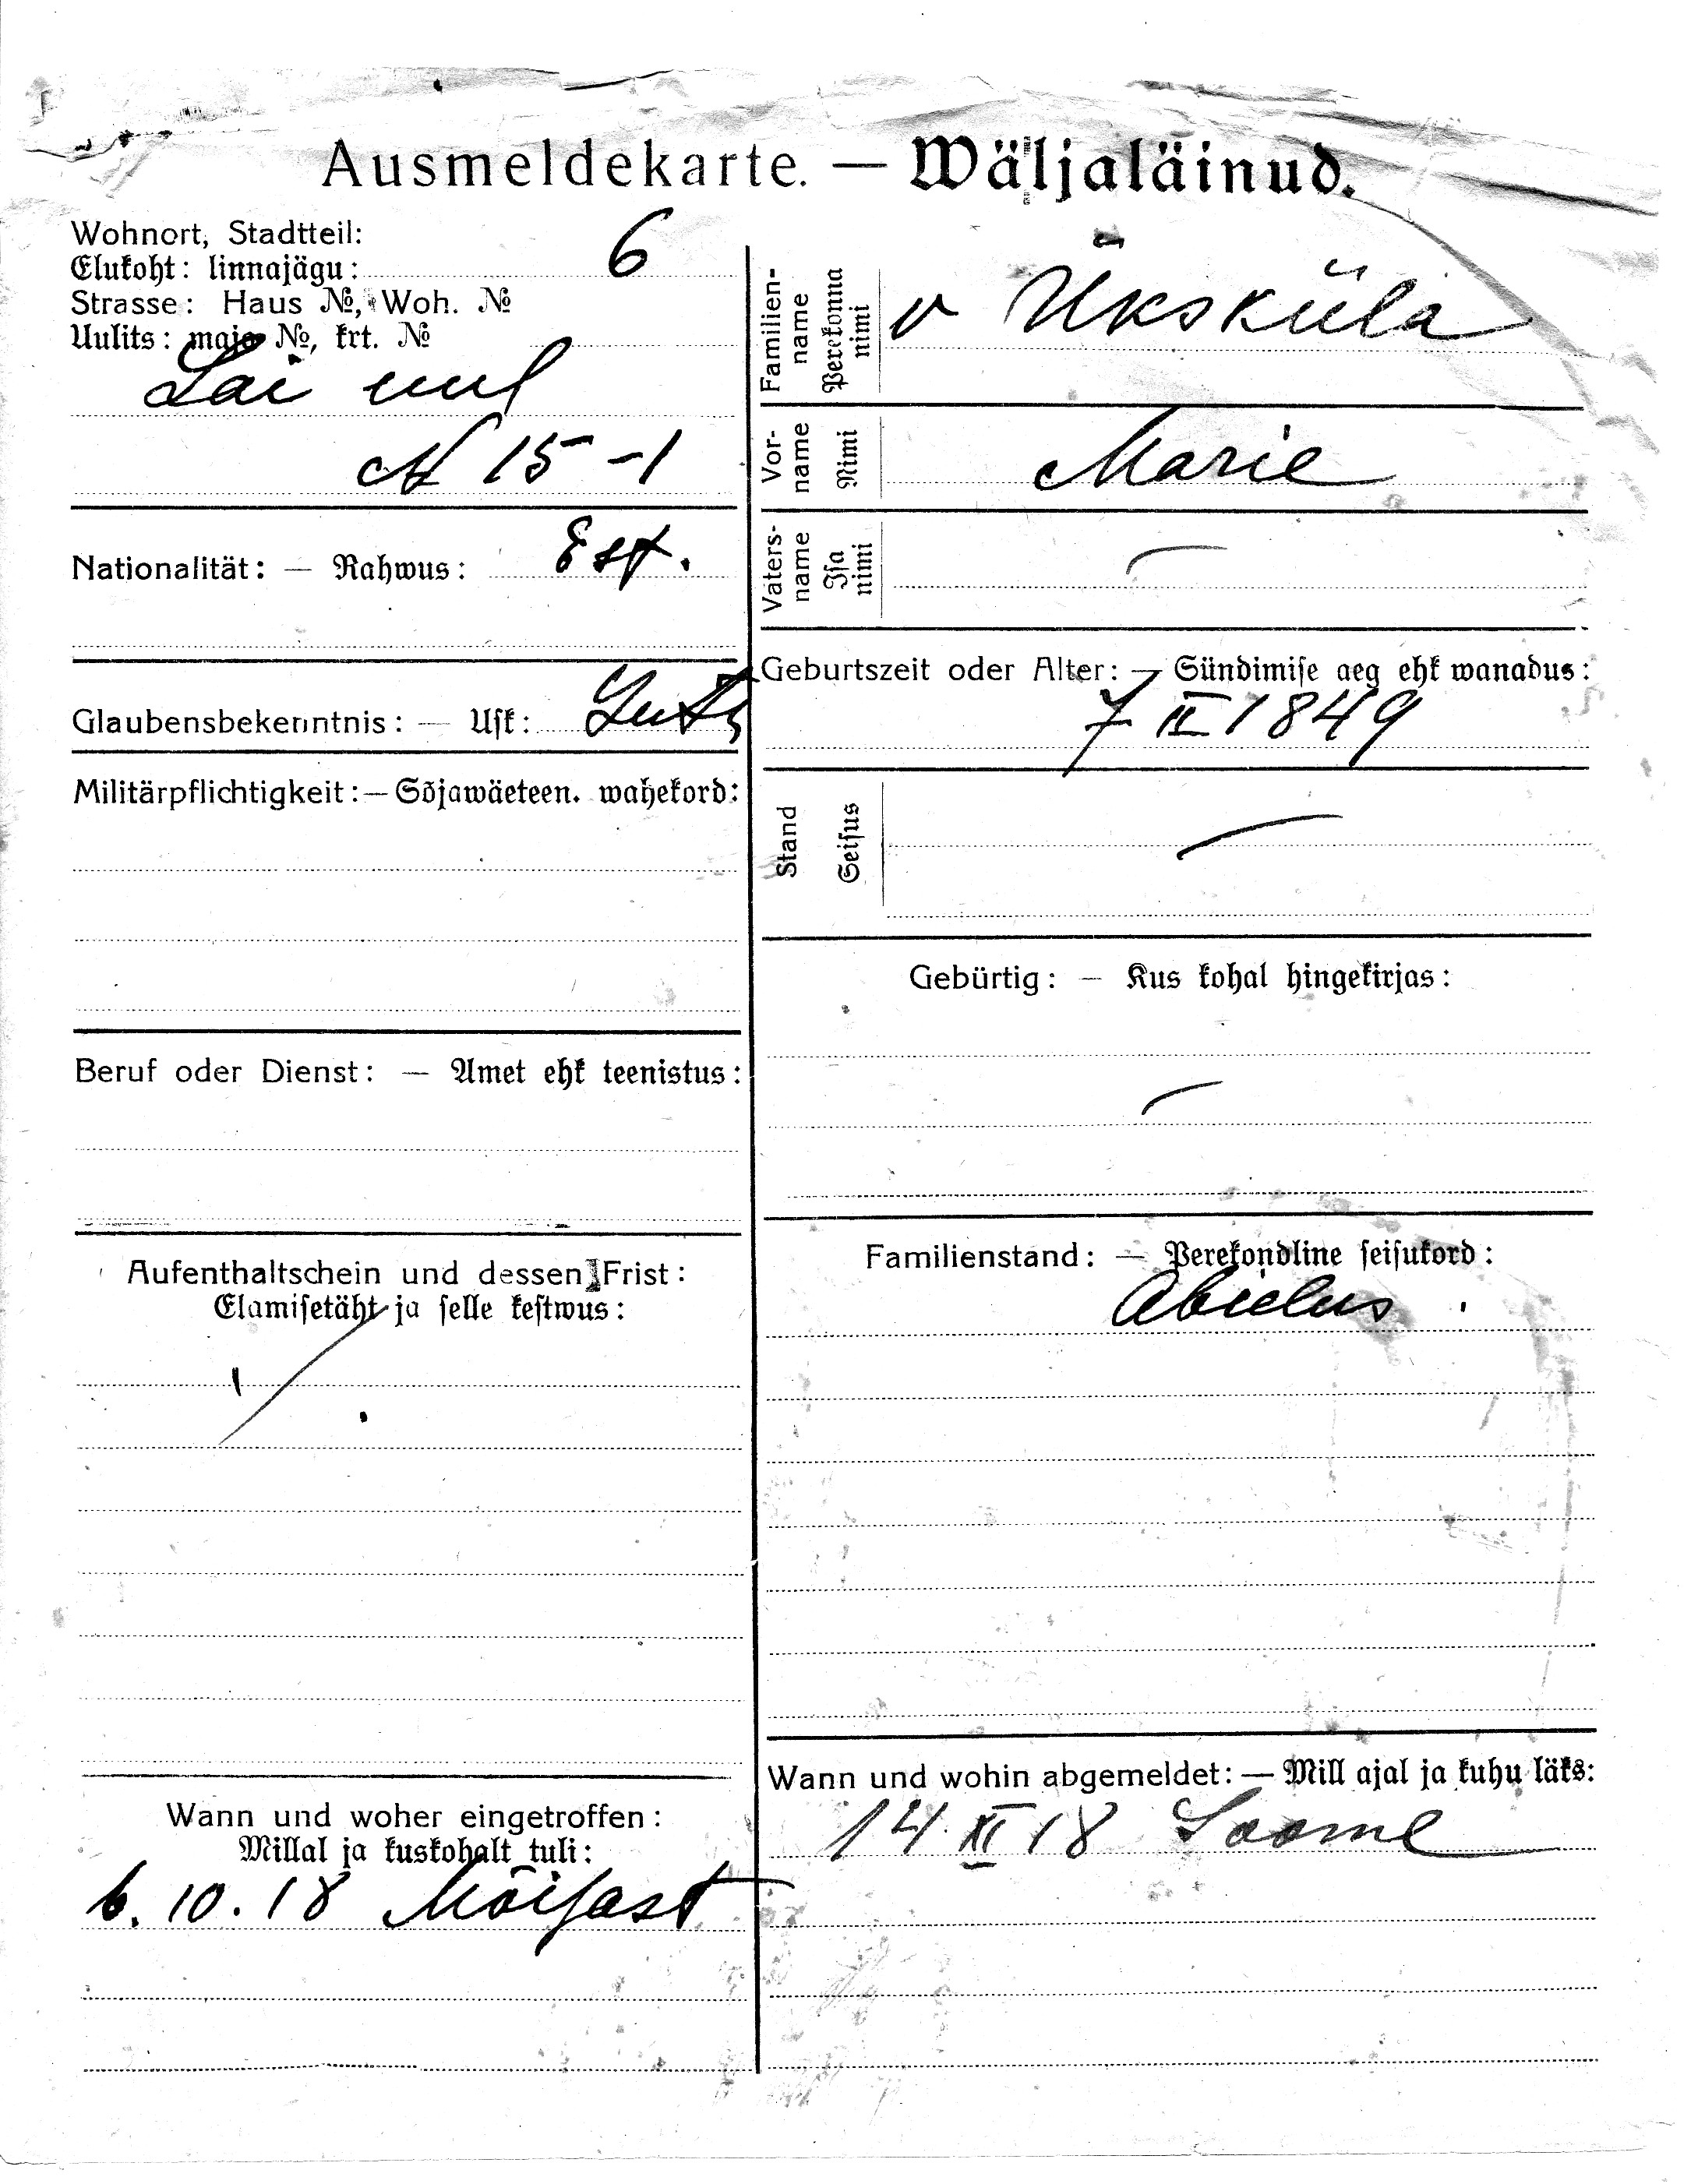 Ausmeldekarte. — Wäljaläinud.
Wohnort, Stadtteil:
Elukoht: linnajägu: 6
Strasse: Haus №, Woh. №
Uulits: maja №, krt. №
Lai uul
№ 15-1
Nationalität: — Rahwus: Est.
Glaubensbekenntnis: — Usk: Luth
Militärpflichtigkeit: — Sõjawäeteen. wahekord:
Beruf oder Dienst: — Amet ehk teenistus:
Aufenthaltschein und dessen Frist:
Elamisetäht ja selle kestwus:
Wann und woher eingetroffen:
Millal ja kuskohalt tuli:
6. 10. 18 Mõisast
Familien-
name
Perekonna
nimi
v Üksküla
Vor-
name
Nimi
Marie
Vaters-
name
Isa
nimi
—
Geburtszeit oder Alter: — Sündimise aeg ehk wanadus:
7 II 1849
Stand
Seisus
—
Gebürtig: — Kus kohal hingekirjas:
—
Familienstand: — Perekondline seisukord:
Abielus
Wann und wohin abgemeldet: — Mill ajal ja kuhu läks:
14. XI 18 Soome